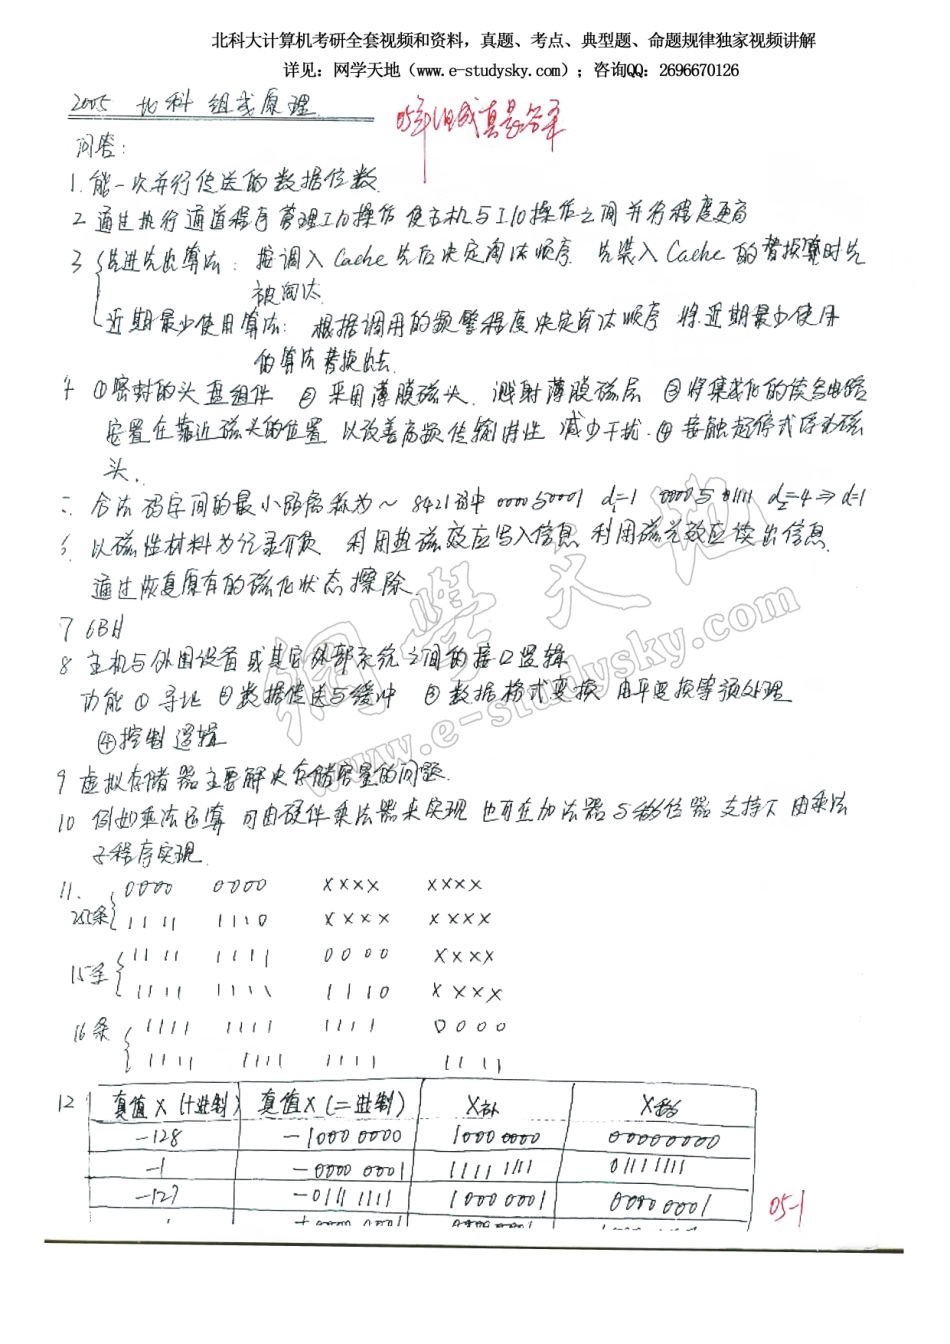 北科大计算机考研全套视频和资料，真题、考点、典型题、命题规律独家视频讲解
详见：网学天地（www.e-studysky.com）；咨询QQ：2696670126
2005 北科 组成原理
05年组成真题答案
问答：
1. 能一次并行传送的数据位数
2 通过执行通道程序管理I/O操作 使主机与I/O操作之间并行程度更高
3 先进先出算法：按调入Cache先后决定淘汰顺序 先装入Cache的替换算时先
被淘汰
近期最少使用算法：根据调用的频繁程度决定淘汰顺序 将近期最少使用
的算法替换出去.
4 ①密封的头盘组件 ②采用薄膜磁头、溅射薄膜磁层 ③将集成化的读写电路
安置在靠近磁头的位置 以改善高频传输特性 减少干扰. ④接触起停式浮动磁
头.
合法码字间的最小距离称为~ 8421码中 0000与0001 d=1 0000与01111 d₂=4⇒d=1
6. 以磁性材料为记录介质 利用热磁效应写入信息 利用磁光效应读出信息
通过恢复原有的磁化状态擦除
7 6BH
8 主机与外围设备或其它外部系统之间的接口逻辑
功能 ①寻址 ②数据传送与缓冲 ③数据格式变换 电平变换等预处理
④控制逻辑
9 虚拟存储器主要解决存储容量的问题.
10 例如乘法运算 可由硬件乘法器来实现 也可在加法器与移位器支持下 由乘法
子程序实现.
11. 0000 0000 XXXX XXXX
255条 1111 1110 XXXX XXXX
1111 1111 0000 XXXX
15条 1111 1111 1110 XXXX
16条 1111 1111 1111 0000
1111 1111 1111 1111
12 真值X(十进制) 真值X(二进制) X补 X移
-128 -1000 0000 1000 0000 00000000
-1 -0000 0001 1111 1111 01111111
-127 -0111 1111 1000 0001 0000 0001
05-1
網學天地
www.e-studysky.com